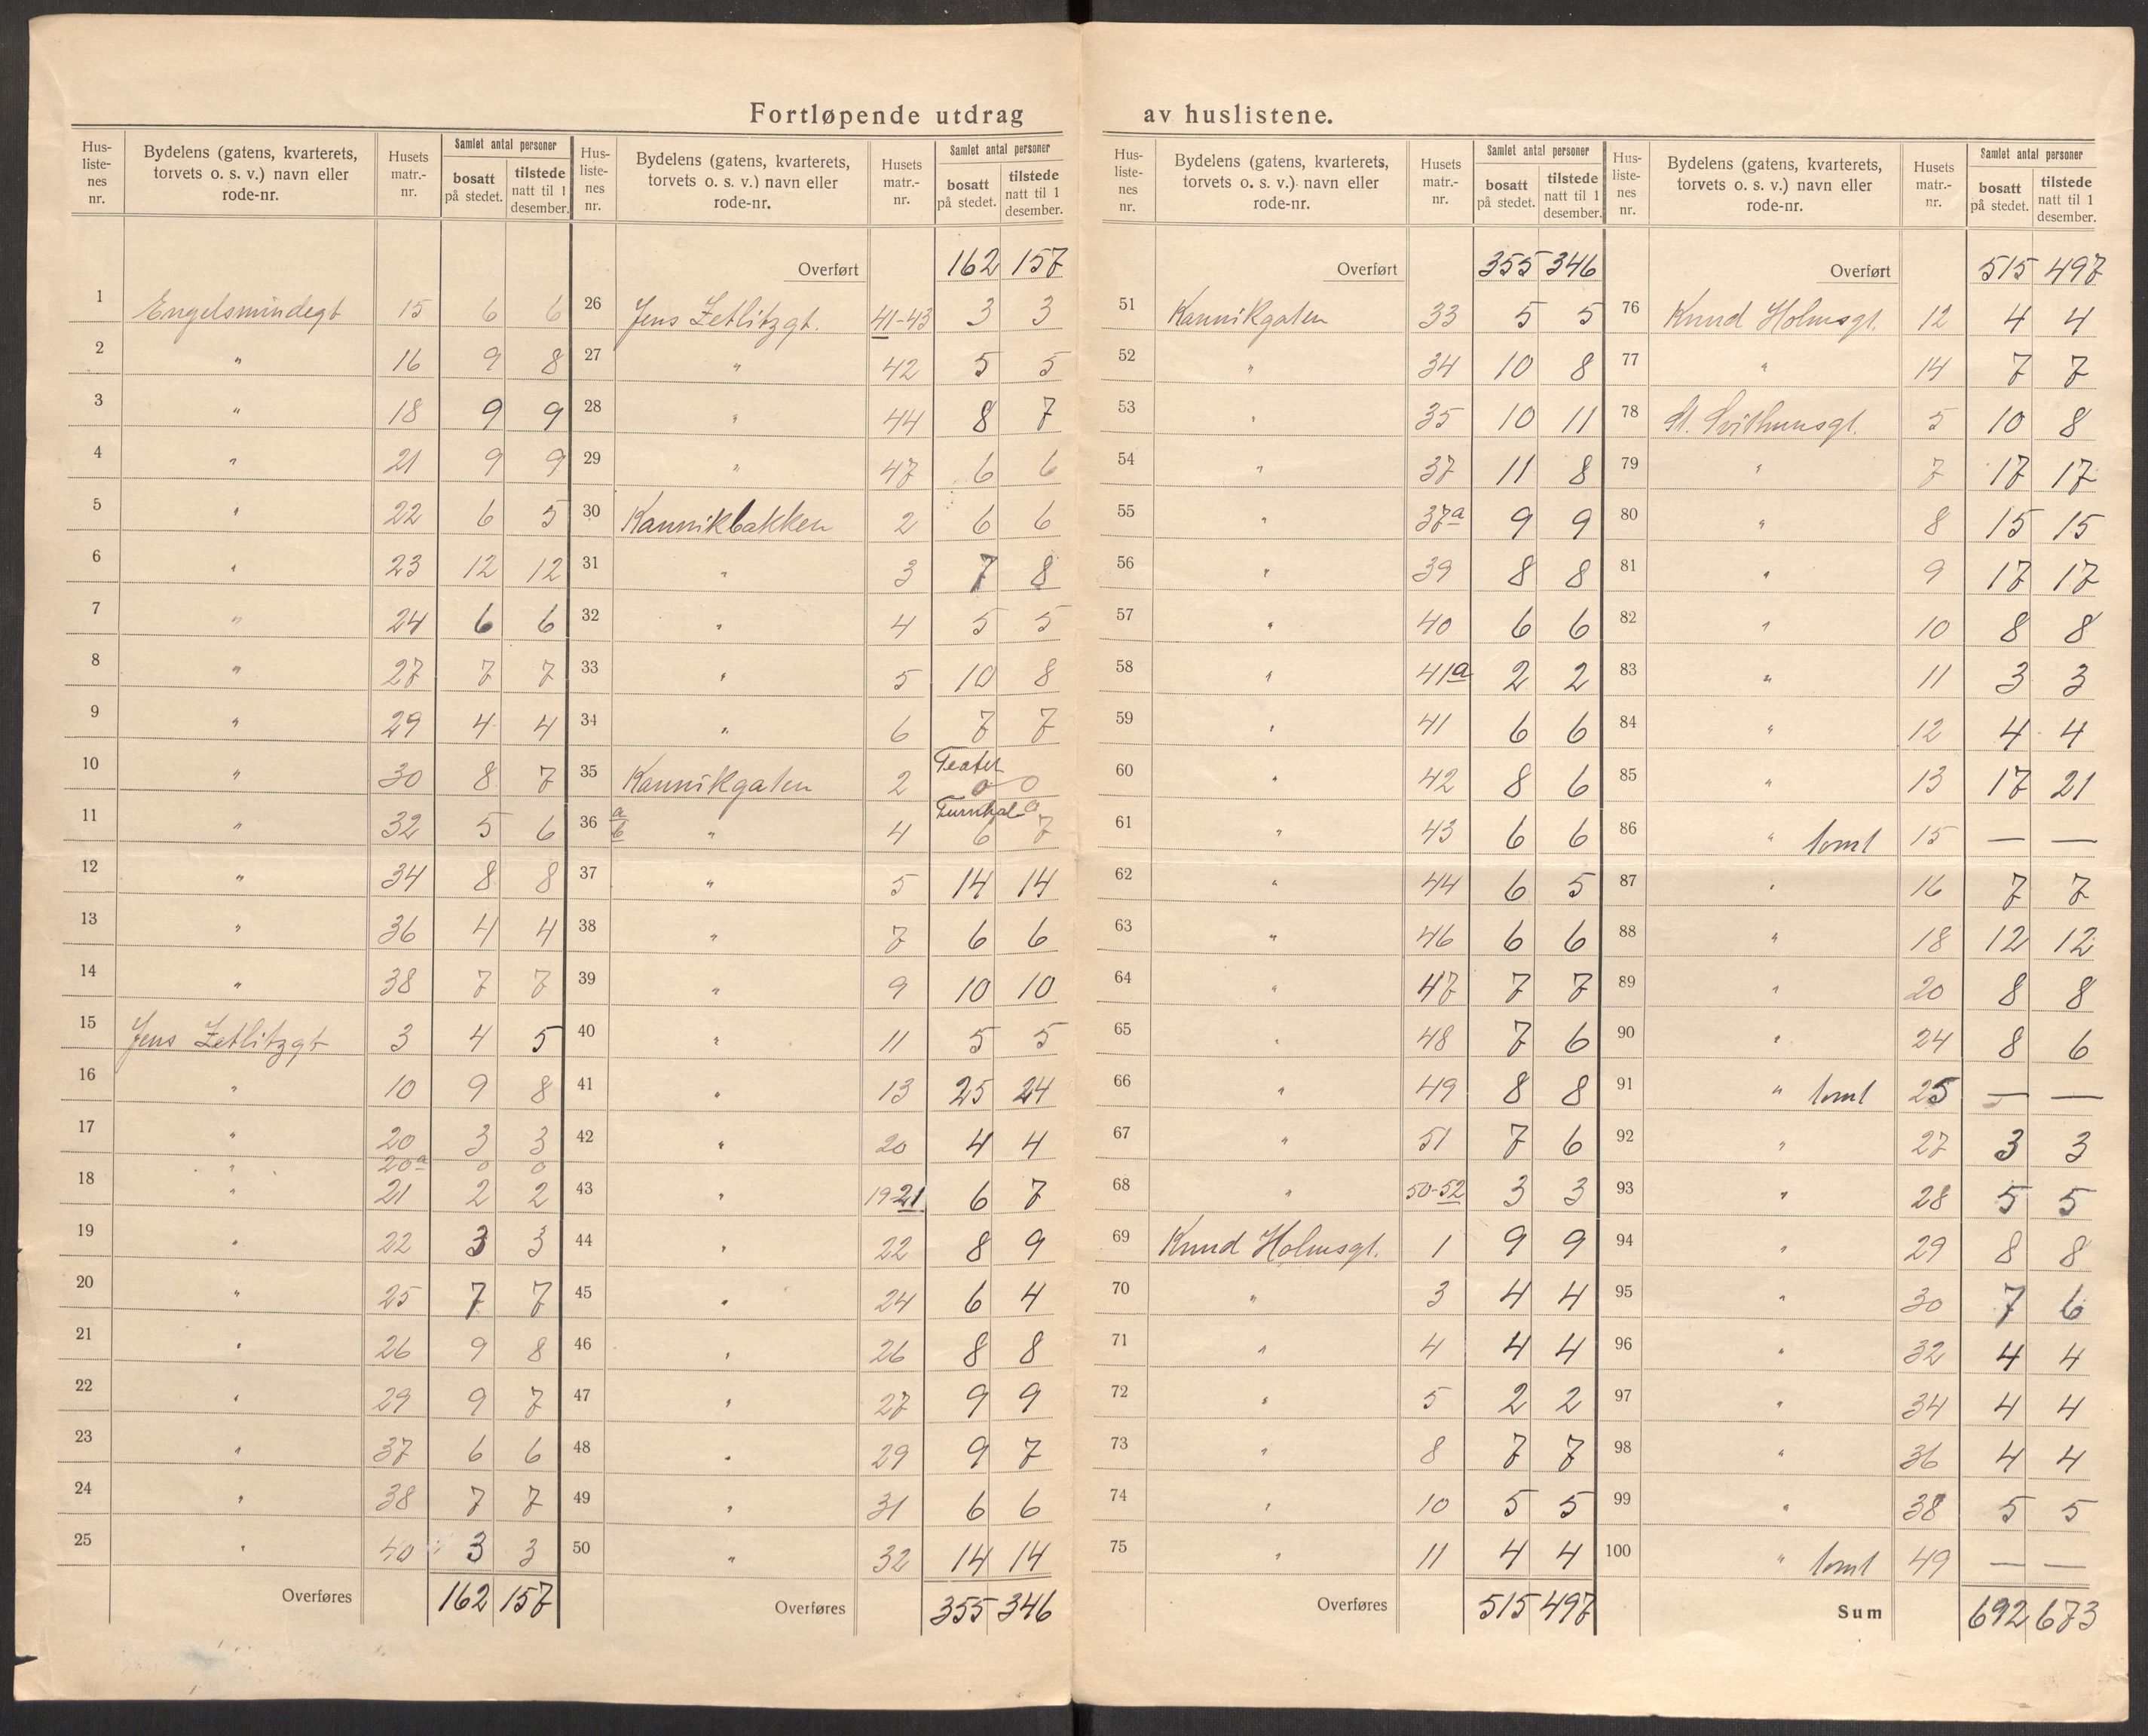 Fortløpende utdrag av huslistene.
Hus-liste-nes nr. | Bydelens (gatens, kvarterets, torvets o. s. v.) navn eller rode-nr. | Husets matr.-nr. | Samlet antal personer bosatt på stedet. | tilstede natt til 1 desember.
1 Engelsmindegt 15 6 6
2 " 16 9 8
3 " 18 9 9
4 " 21 9 9
5 " 22 6 5
6 " 23 12 12
7 " 24 6 6
8 " 27 7 7
9 " 29 4 4
10 " 30 8 7
11 " 32 5 6
12 " 34 8 8
13 " 36 4 4
14 " 38 7 7
15 Jens Zetlitzgt 3 4 5
16 " 10 9 8
17 " 20 3 3
" 20a 0 0
18 " 21 2 2
19 " 22 3 3
20 " 25 7 7
21 " 26 9 8
22 " 29 9 7
23 " 37 6 6
24 " 38 7 7
25 " 40 3 3
Overføres 162 157
Hus-liste-nes nr. | Bydelens (gatens, kvarterets, torvets o. s. v.) navn eller rode-nr. | Husets matr.-nr. | Samlet antal personer bosatt på stedet. | tilstede natt til 1 desember.
Overført 162 157
26 Jens Zetlitzgt. 41-43 3 3
27 " 42 5 5
28 " 44 8 7
29 " 47 6 6
30 Kannikbakken 2 6 6
31 " 3 7 8
32 " 4 5 5
33 " 5 10 8
34 " 6 7 7
35 Kannikgaten 2 Teatet 0 0
36 a b " 4 Turnhal 0 6 7
37 " 5 14 14
38 " 7 6 6
39 " 9 10 10
40 " 11 5 5
41 " 13 25 24
42 " 20 4 4
43 " 19-21 6 7
44 " 22 8 9
45 " 24 6 4
46 " 26 8 8
47 " 27 9 9
48 " 29 9 7
49 " 31 6 6
50 " 32 14 14
Overføres 355 346
Hus-liste-nes nr. | Bydelens (gatens, kvarterets, torvets o. s. v.) navn eller rode-nr. | Husets matr.-nr. | Samlet antal personer bosatt på stedet. | tilstede natt til 1 desember.
Overført 355 346
51 Kannikgaten 33 5 5
52 " 34 10 8
53 " 35 10 11
54 " 37 11 8
55 " 37a 9 9
56 " 39 8 8
57 " 40 6 6
58 " 41a 2 2
59 " 41 6 6
60 " 42 8 6
61 " 43 6 6
62 " 44 6 5
63 " 46 6 6
64 " 47 7 7
65 " 48 7 6
66 " 49 8 8
67 " 51 7 6
68 " 50-52 3 3
69 Knud Holmsgt. 1 9 9
70 " 3 4 4
71 " 4 4 4
72 " 5 2 2
73 " 8 7 7
74 " 10 5 5
75 " 11 4 4
Overføres 515 497
Hus-liste-nes nr. | Bydelens (gatens, kvarterets, torvets o. s. v.) navn eller rode-nr. | Husets matr.-nr. | Samlet antal personer bosatt på stedet. | tilstede natt til 1 desember.
Overført 515 497
76 Knud Holmsgt. 12 4 4
77 " 14 7 7
78 St. Svithunsgt. 5 10 8
79 " 7 17 17
80 " 8 15 15
81 " 9 17 17
82 " 10 8 8
83 " 11 3 3
84 " 12 4 4
85 " 13 17 21
86 " tomt 15 — —
87 " 16 7 7
88 " 18 12 12
89 " 20 8 8
90 " 24 8 6
91 " tomt 25 — —
92 " 27 3 3
93 " 28 5 5
94 " 29 8 8
95 " 30 7 6
96 " 32 4 4
97 " 34 4 4
98 " 36 4 4
99 " 38 5 5
100 " tomt 49 — —
Sum 692 673